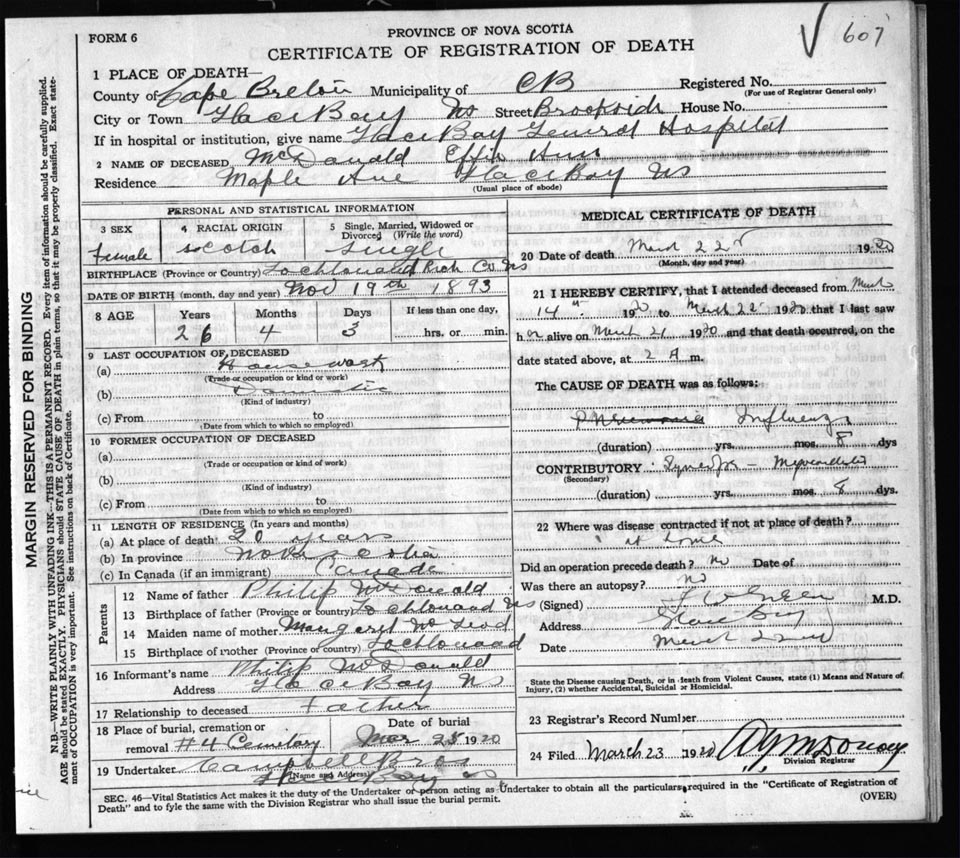 FORM 6
PROVINCE OF NOVA SCOTIA
CERTIFICATE OF REGISTRATION OF DEATH
607
1 PLACE OF DEATH—
County of Cape Breton Municipality of CB Registered No.
(For use of Registrar General only)
City or Town Glace Bay NS Street Brookside House No.
If in hospital or institution, give name Glace Bay General Hospital
2 NAME OF DECEASED McDonald Effie Ann
Residence Maple Ave Glace Bay NS
(Usual place of abode)
PERSONAL AND STATISTICAL INFORMATION
3 SEX 4 RACIAL ORIGIN 5 Single, Married, Widowed or Divorced (Write the word)
Female Scotch Single
BIRTHPLACE (Province or Country) Lochlomand Rich Co NS
DATE OF BIRTH (month, day and year) Nov 19th 1893
8 AGE Years Months Days If less than one day,
26 4 3 hrs. or min.
9 LAST OCCUPATION OF DECEASED
(a) Housework
(Trade or occupation or kind or work)
(b) Domestic
(Kind of industry)
(c) From to
(Date from which to which so employed)
10 FORMER OCCUPATION OF DECEASED
(a)
(Trade or occupation or kind of work)
(b)
(Kind of industry)
(c) From to
(Date from which to which so employed)
11 LENGTH OF RESIDENCE (In years and months)
(a) At place of death 20 years
(b) In province Nova Scotia
(c) In Canada (if an immigrant) Canada
Parents
12 Name of father Philip McDonald
13 Birthplace of father (Province or country) Lochlomand NS
14 Maiden name of mother Margaret McLeod
15 Birthplace of mother (Province or country) Lochlomand
16 Informant's name Philip McDonald
Address Glace Bay NS
17 Relationship to deceased Father
18 Place of burial, cremation or removal #4 Cemetery
Date of burial Mar 23 1920
19 Undertaker Campbell Bros
(Name and Address) Glace Bay NS
MEDICAL CERTIFICATE OF DEATH
20 Date of death March 22nd 1920
(Month, day and year)
21 I HEREBY CERTIFY, that I attended deceased from March
14th 1920 to March 22 1920 that I last saw
her alive on March 21 1920 and that death occurred, on the
date stated above, at 2 A m.
The CAUSE OF DEATH was as follows:
Pneumonia Influenza
(duration) yrs. mos. 8 dys
CONTRIBUTORY Myocarditis
(Secondary)
(duration) yrs. mos. 8 dys.
22 Where was disease contracted if not at place of death?
at home
Did an operation precede death? No Date of
Was there an autopsy? No
(Signed) M.D.
Address Glace Bay
Date March 22nd
State the Disease causing Death, or in death from Violent Causes, state (1) Means and Nature of Injury, (2) whether Accidental, Suicidal or Homicidal.
23 Registrar's Record Number
24 Filed March 23 1920
Division Registrar
SEC. 46—Vital Statistics Act makes it the duty of the Undertaker or person acting as Undertaker to obtain all the particulars required in the "Certificate of Registration of
Death" and to fyle the same with the Division Registrar who shall issue the burial permit.
(OVER)
MARGIN RESERVED FOR BINDING
N.B.—WRITE PLAINLY WITH UNFADING INK—THIS IS A PERMANENT RECORD. Every item of information should be carefully supplied.
AGE should be stated EXACTLY. PHYSICIANS should STATE CAUSE OF DEATH in plain terms, so that it may be properly classified. Exact state-
ment of OCCUPATION is very important. See instructions on back of Certificate.